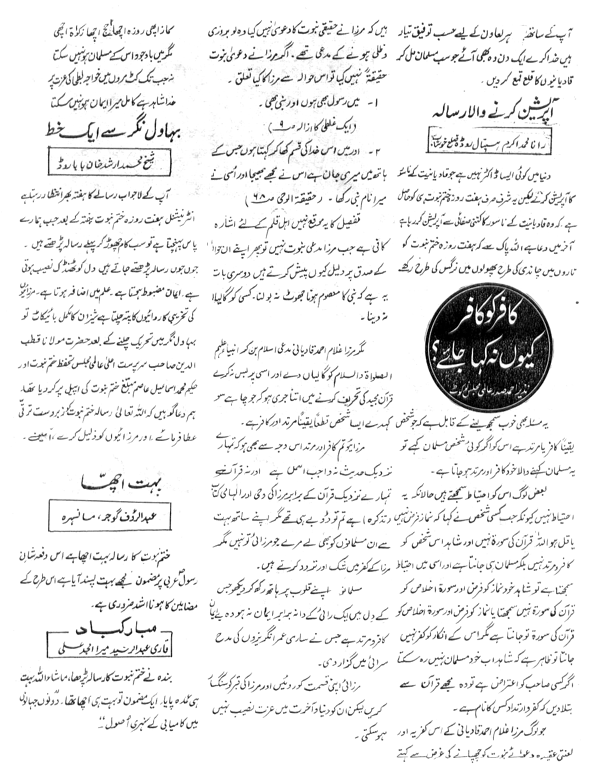 آپ کے ساتھ ہر تعاون کے لئے حسب توفیق تیار
ہیں خدا کرے ایک دن وہ بھی آئے جو سب مسلمان مل کر
قادیانیوں کا قلع قمع کر دیں۔
آپریشن کرنے والا رسالہ
رانا محمد اکرم ہسپتال روڈ ضلع خوشاب
دنیا میں کوئی ایسا ڈاکٹر نہیں ہے جو قادیانیت کے ناسور
کا آپریشن کرے لیکن یہ شرف صرف ہفت روزہ ختم نبوت ہی کو حاصل
ہے کہ وہ قادیانیت کے ناسور کا کتنی صفائی سے آپریشن کر رہا ہے
آخر میں دعا ہے اللہ پاک سے کہ ہفت روزہ ختم نبوت کو
تاروں میں چاندی کی طرح پھولوں میں نرگس کی طرح رکھے
کافر کو کافر
کیوں نہ کہا جائے؟
یہ مسئلہ بھی خوب سمجھ لینے کے قابل ہے کہ جو شخص
یقیناً کافر یا مرتد ہے اس کو اگر کوئی شخص مسلمان کہے تو
یہ مسلمان کہنے والا خود کافر اور مرتد ہو جاتا ہے۔
بعض لوگ اس کو احتیاط سمجھتے ہیں حالانکہ یہ
احتیاط نہیں کیونکہ جب کسی شخص نے کہا کہ نماز فرض نہیں
یا قل ہو اللہ قرآن کی سورۃ نہیں اور شاہد اس شخص کو
کافر مرتد نہیں بلکہ مسلمان ہی جانتا ہے اور اسی میں احتیاط
سمجھتا ہے تو شاہد خود نماز کو فرض اور سورۃ اخلاص کو
قرآن کی سورۃ نہیں سمجھتا یا نماز کو فرض اور سورۃ اخلاص کو
قرآن کی سورۃ تو جانتا ہے مگر اس کے انکار کو کفر نہیں
جانتا تو ظاہر ہے کہ شاہد اب خود مسلمان نہیں رہ سکتا
اگر کسی صاحب کو اعتراض ہے تو وہ مجھے قرآن سے
بتلا دیں کہ کفر و ارتداد کس کا نام ہے۔
جو لوگ مرزا غلام احمد قادیانی کے اس کفریہ اور
لعنتی عقیدہ دعوائے نبوت کو چھپانے کی غرض سے کہتے
ہیں کہ مرزا نے حقیقی نبوت کا دعویٰ نہیں کیا وہ تو بروزی
وظلی ہونے کے مدعی تھے۔ اگر مرزا نے دعویٰ نبوت
حقیقۃً نہیں کیا تو اس حوالہ سے مرزا کا کیا تعلق۔
۱ - میں رسول بھی ہوں اور نبی بھی۔
(ایک غلطی کا ازالہ ص ۹)
۲ - اور میں اس خدا کی قسم کھا کر کہتا ہوں جس کے
ہاتھ میں میری جان ہے اس نے مجھے بھیجا اور اسی نے
میرا نام نبی رکھا۔ (حقیقۃ الوحی ص ۶۸)
تفصیل کا یہ موقع نہیں اہل فکر کے لئے اشارہ
کافی ہے جب مرزا مدعی نبوت نہیں تو پھر اپنے ان
کے صدق پر دلیل کیوں پیش کرتے ہیں دوسری بات
یہ ہے کہ نبی کا معصوم ہونا جھوٹ نہ بولنا۔ کسی کو گالیاں
نہ دینا۔
مگر مرزا غلام احمد قادیانی مدعی اسلام بن کر انبیاء علیہم
الصلوٰۃ والسلام کو گالیاں دے اور اسی پر بس نہ کرے
قرآن مجید کی تحریف کرنے میں اتنا جری ہو کہ جو چاہے سو
کہدے ایسا شخص قطعاً یقیناً مرتد اور کافر ہے۔
مرزائیو تم کافر اور مرتد اس وجہ سے بھی ہو کہ تمہارے
نزدیک حدیث نہ واجب العمل ہے اور نہ قرآن ہے
تمہارے نزدیک قرآن کے برابر مرزا کی وحی اور الہامی کتاب
(تذکرہ) ہے تم تو ڈوبے ہی تھے مگر اپنے ساتھ بہت
سے ان مسلمانوں کو بھی لے مرے جو مرزائی تو نہیں مگر
مرزا کے کفر میں شک اور تردد کرتے ہیں۔
مسلمانو اپنے قلوب پر ہاتھ رکھ کر دیکھو جس
کے دل میں ایک رائی کے دانہ برابر ایمان نہ ہو وہ بے ایمان
کافر و مرتد ہے جس نے ساری عمر انگریزوں کی مدح
سرائی میں گزار دی۔
مرزائی اپنی قسمت کو روئیں اور مرزا کی قبر کو سنگسار
کریں لیکن ان کو دنیا و آخرت میں عزت نصیب نہیں
ہو سکتی۔
نماز اچھی روزہ اچھا حج اچھا زکوٰۃ اچھی
مگر میں باوجود اس کے مسلماں ہو نہیں سکتا
نہ جب تک کٹ مروں میں خواجہ بطحیٰ کی عزت پر
خدا شاہد ہے کامل میرا ایماں ہو نہیں سکتا
بہاول نگر سے ایک خط
شیخ محمد ارشد خان بابا روڈ
آپ کے لاجواب رسالے کا ہفتہ بھر انتظار رہتا ہے
انٹرنیشنل ہفت روزہ ختم نبوت ہفتہ کے بعد جب ہمارے
پاس پہنچتا ہے تو سب کام چھوڑ کر پہلے رسالہ پڑھتے ہیں۔
جوں جوں رسالہ پڑھتے جاتے ہیں دل کو ٹھنڈک نصیب ہوتی
ہے۔ ایمان مضبوط ہوتا ہے۔ علم میں اضافہ ہوتا ہے۔
کی تخریبی کارروائیوں کا پتہ چلتا ہے شیزان کا مکمل بائیکاٹ تو
بہاول نگر میں تحریک چلنے کے بعد حضرت مولانا قطب
الدین صاحب سرپرست اعلیٰ عالمی مجلس تحفظ ختم نبوت اور
حکیم محمد اسماعیل عاصم مبلغ ختم نبوت کی اپیل پر کر دیا تھا۔
ہم دعا گو ہیں کہ اللہ تعالیٰ رسالہ ختم نبوت کو زبردست ترقی
عطا فرمائے، اور مرزائیوں کو ذلیل کرے، آمین۔
بہت اچھا
عبدالرؤف گوجر، مانسہرہ
ختم نبوت کا رسالہ بہت اچھا ہے اس دفعہ شان
رسول عربی پر مضمون مجھے بہت پسند آیا ہے اس طرح کے
مضامین کا ہونا اشد ضروری ہے۔
مبارکباد
قاری عبدالرشید میرا امجد علی
بندہ نے ختم نبوت کا رسالہ پڑھا، ماشاء اللہ بہت
ہی عمدہ پایا۔ ایک مضمون تو بہت ہی اچھا تھا۔ "دونوں جہانوں
میں کامیابی کے سنہری اصول"